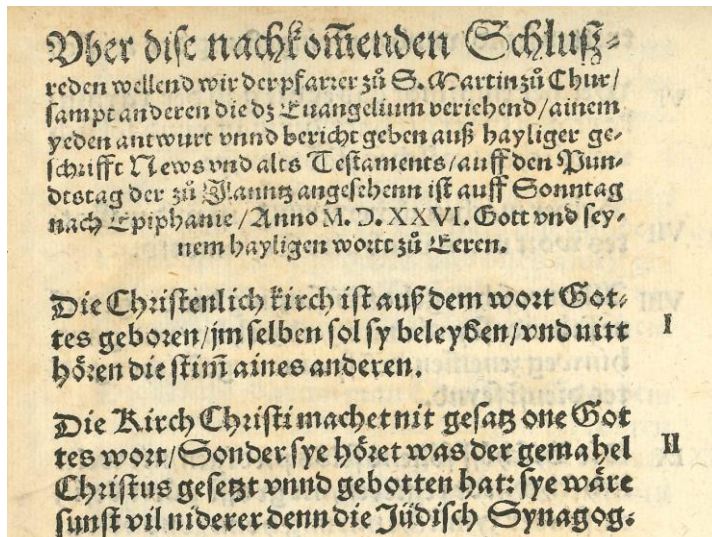 Vber dise nachkom̄enden Schlußz-
reden wellend wir der pfarrer zů S. Martin zů Chur/
sampt anderen die dz Euangelium veriehend/ainem
yeden antwurt vnnd bericht geben auß hayliger ge-
schrifft News vnd alts Testaments/auff den Pun-
dtstag der zů Jlanntz angesehenn ist auff Sonntag
nach Epiphanie/Anno M. D. XXVI. Gott vnd sey-
nem hayligen wort zů Eeren.
Die Christenlich kirch ist auß dem wort Got-
tes geboren/jm selben sol sy beleyben/vnd nitt I
hören die stim̄ aines anderen.
Die Kirch Christi machet nit gesatz one Got
tes wort/Sonder sye höret was der gemahel II
Christus gesetzt vnnd gebotten hat: sye wäre
sunst vil niderer denn die Jüdisch Synagog: